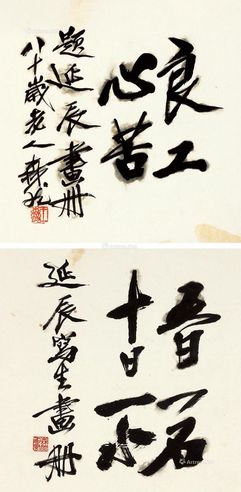 良工
心苦
題延辰畫冊
八十歲老人
五日一石
十日一水
延辰寫生畫冊